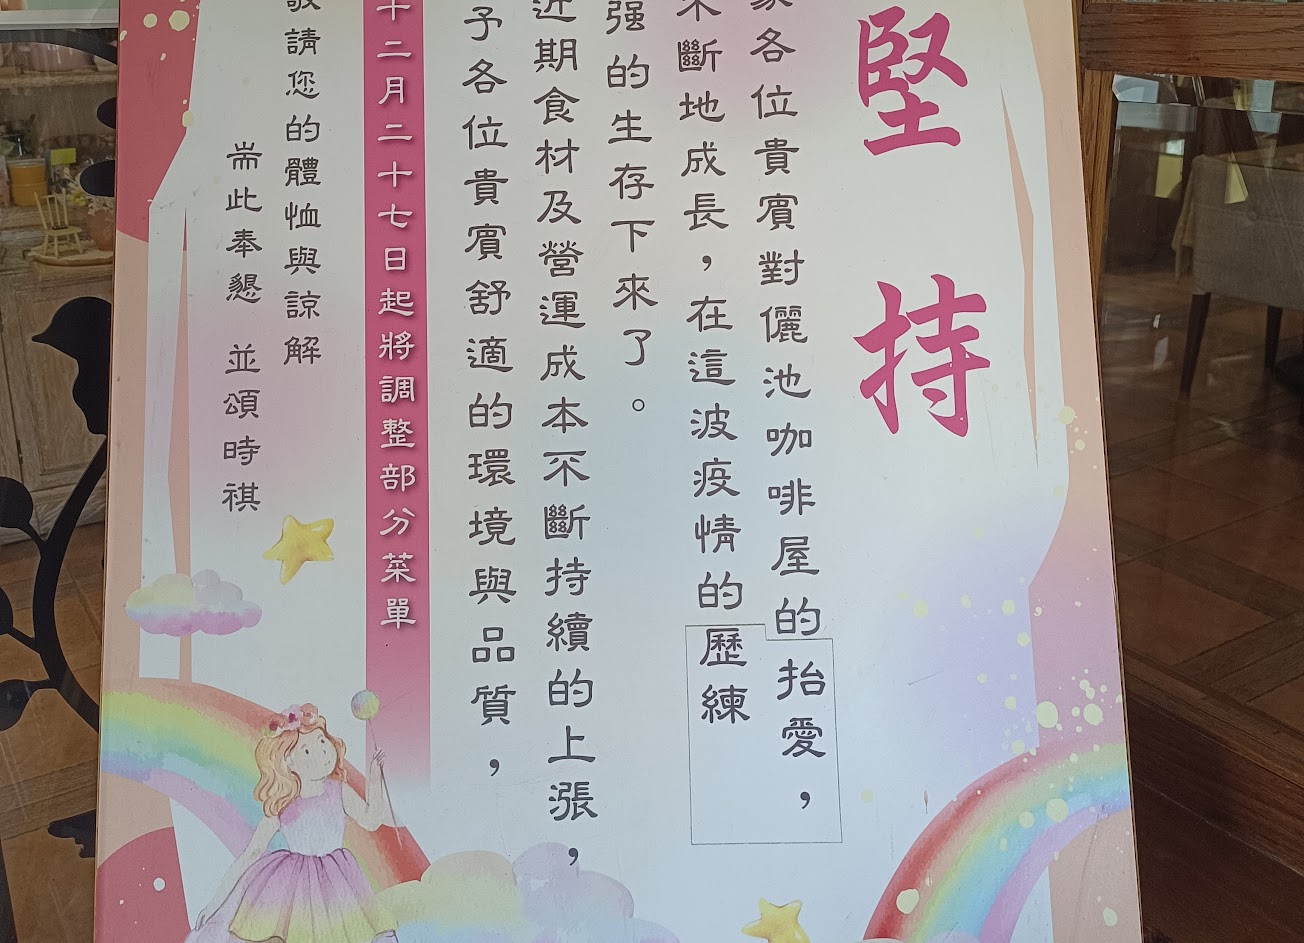 堅持
家各位貴賓對儷池咖啡屋的抬愛，
不斷地成長，在這波疫情的歷練
强的生存下來了。
近期食材及營運成本不斷持續的上漲，
予各位貴賓舒適的環境與品質，
十二月二十七日起將調整部分菜單
敬請您的體恤與諒解
耑此奉懇 並頌時祺